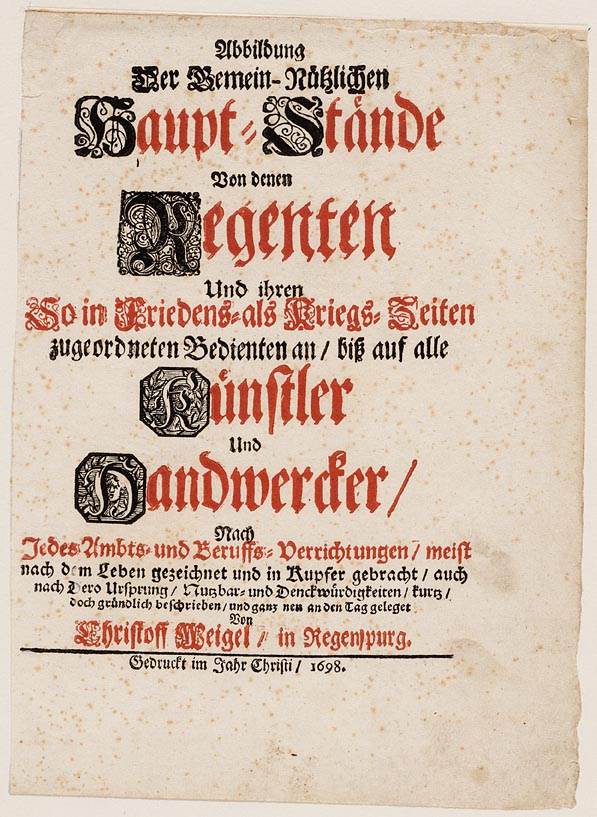 Abbildung
Der Gemein-Nützlichen
Haupt-Stände
Von denen
Regenten
Und ihren
So in Friedens-als Kriegs-Zeiten
zugeordneten Bedienten an / biß auf alle
Künstler
Und
Handwercker /
Nach
Jedes Ambts-und Beruffs-Verrichtungen / meist
nach dem Leben gezeichnet und in Kupfer gebracht / auch
nach Dero Ursprung / Nutzbar-und Denckwürdigkeiten / kurtz /
doch gründlich beschrieben / und ganz neu an den Tag geleget
Von
Christoff Weigel / in Regenspurg.
Gedruckt im Jahr Christi / 1698.